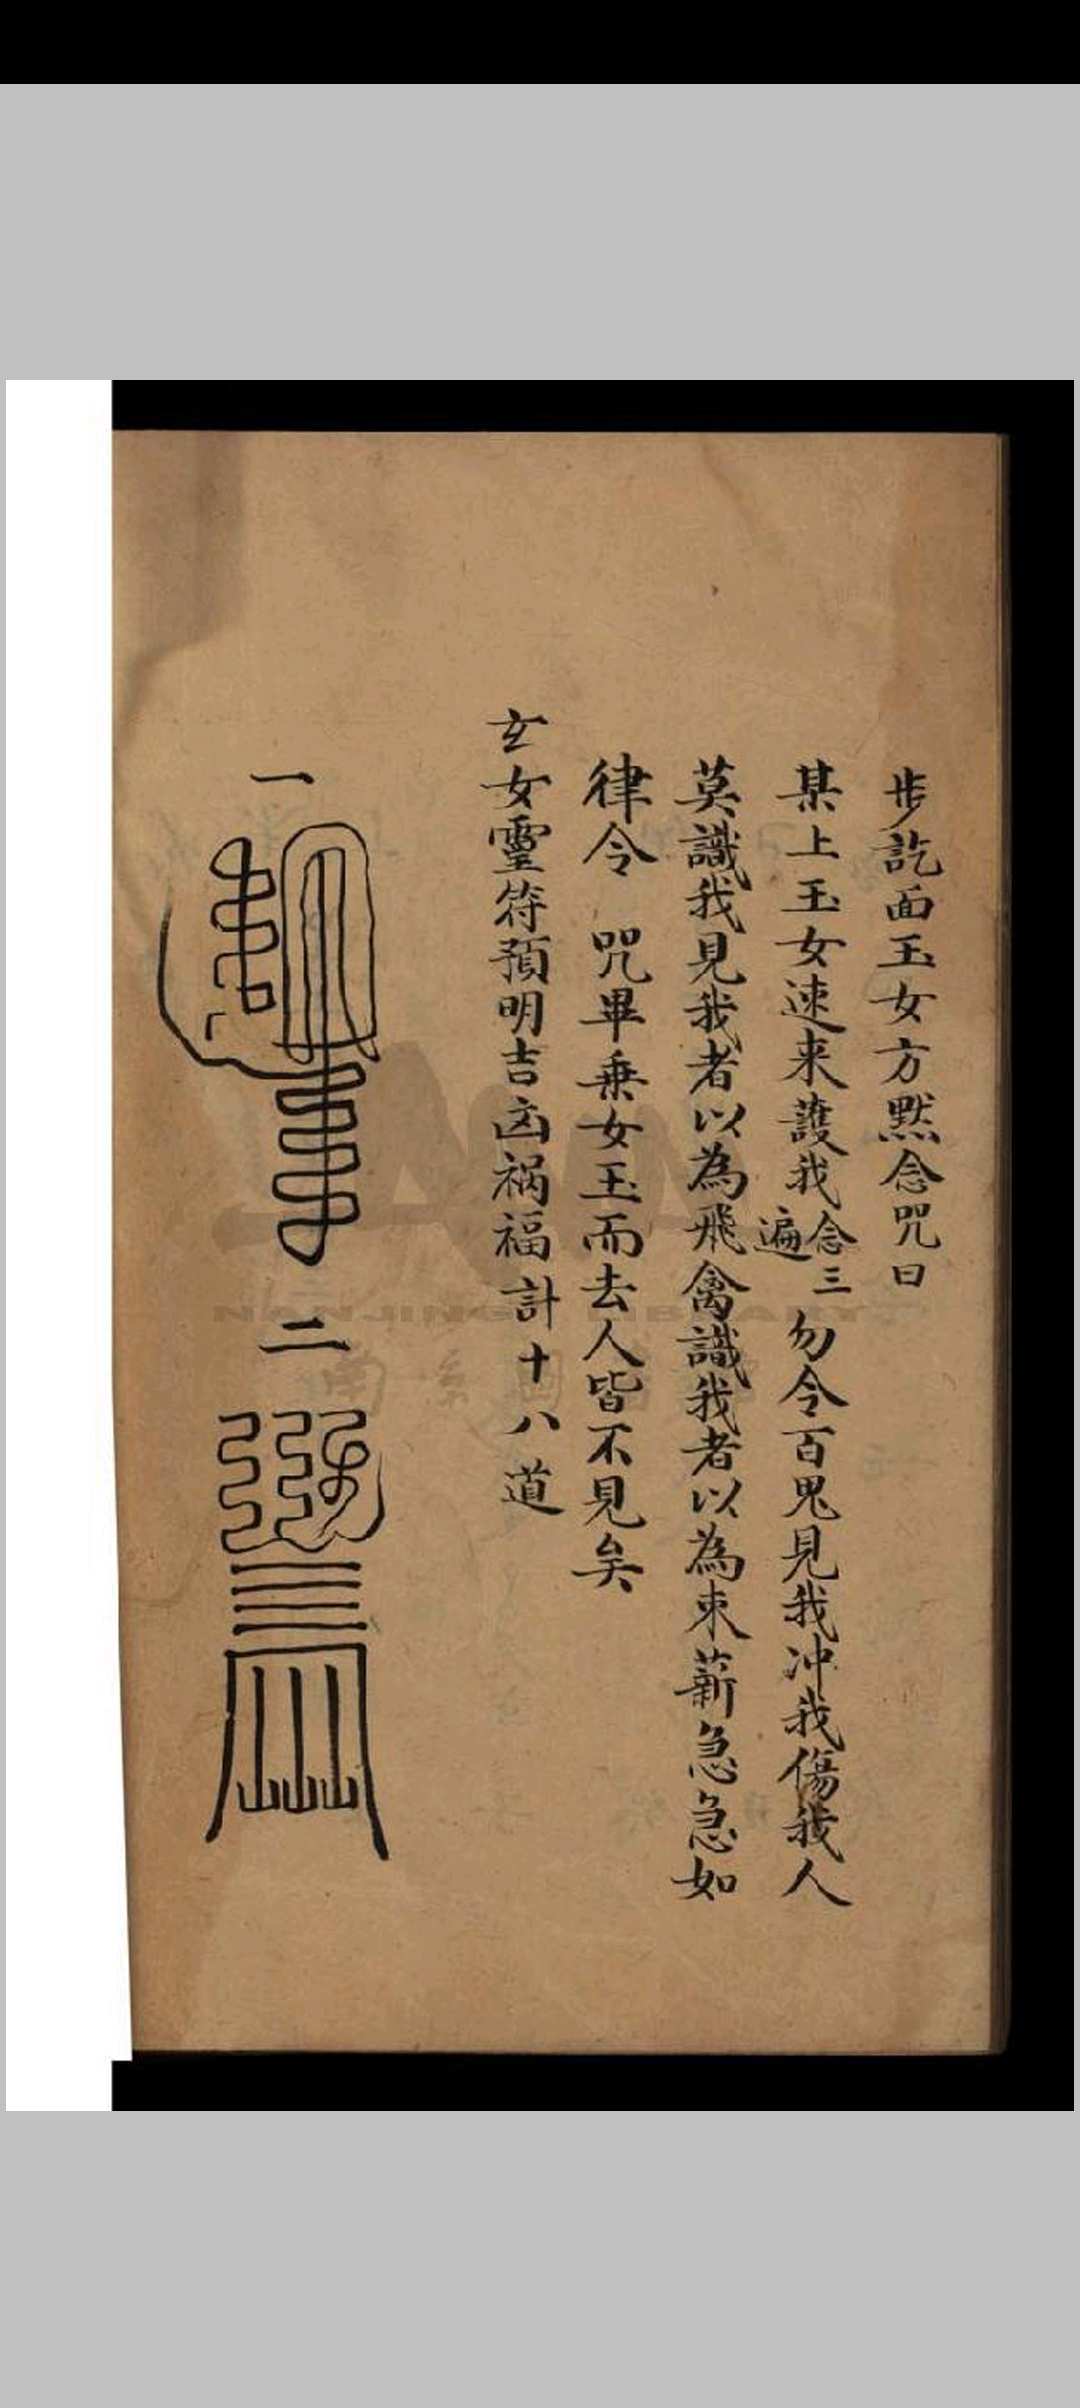 步訖面玉女方默念咒曰
某上玉女速来護我念三遍勿令百鬼見我冲我傷我人
莫識我見我者以為飛禽識我者以為束薪急急如
律令 咒畢乗女玉而去人皆不見矣
玄女靈符預明吉凶禍福計十八道
一
二